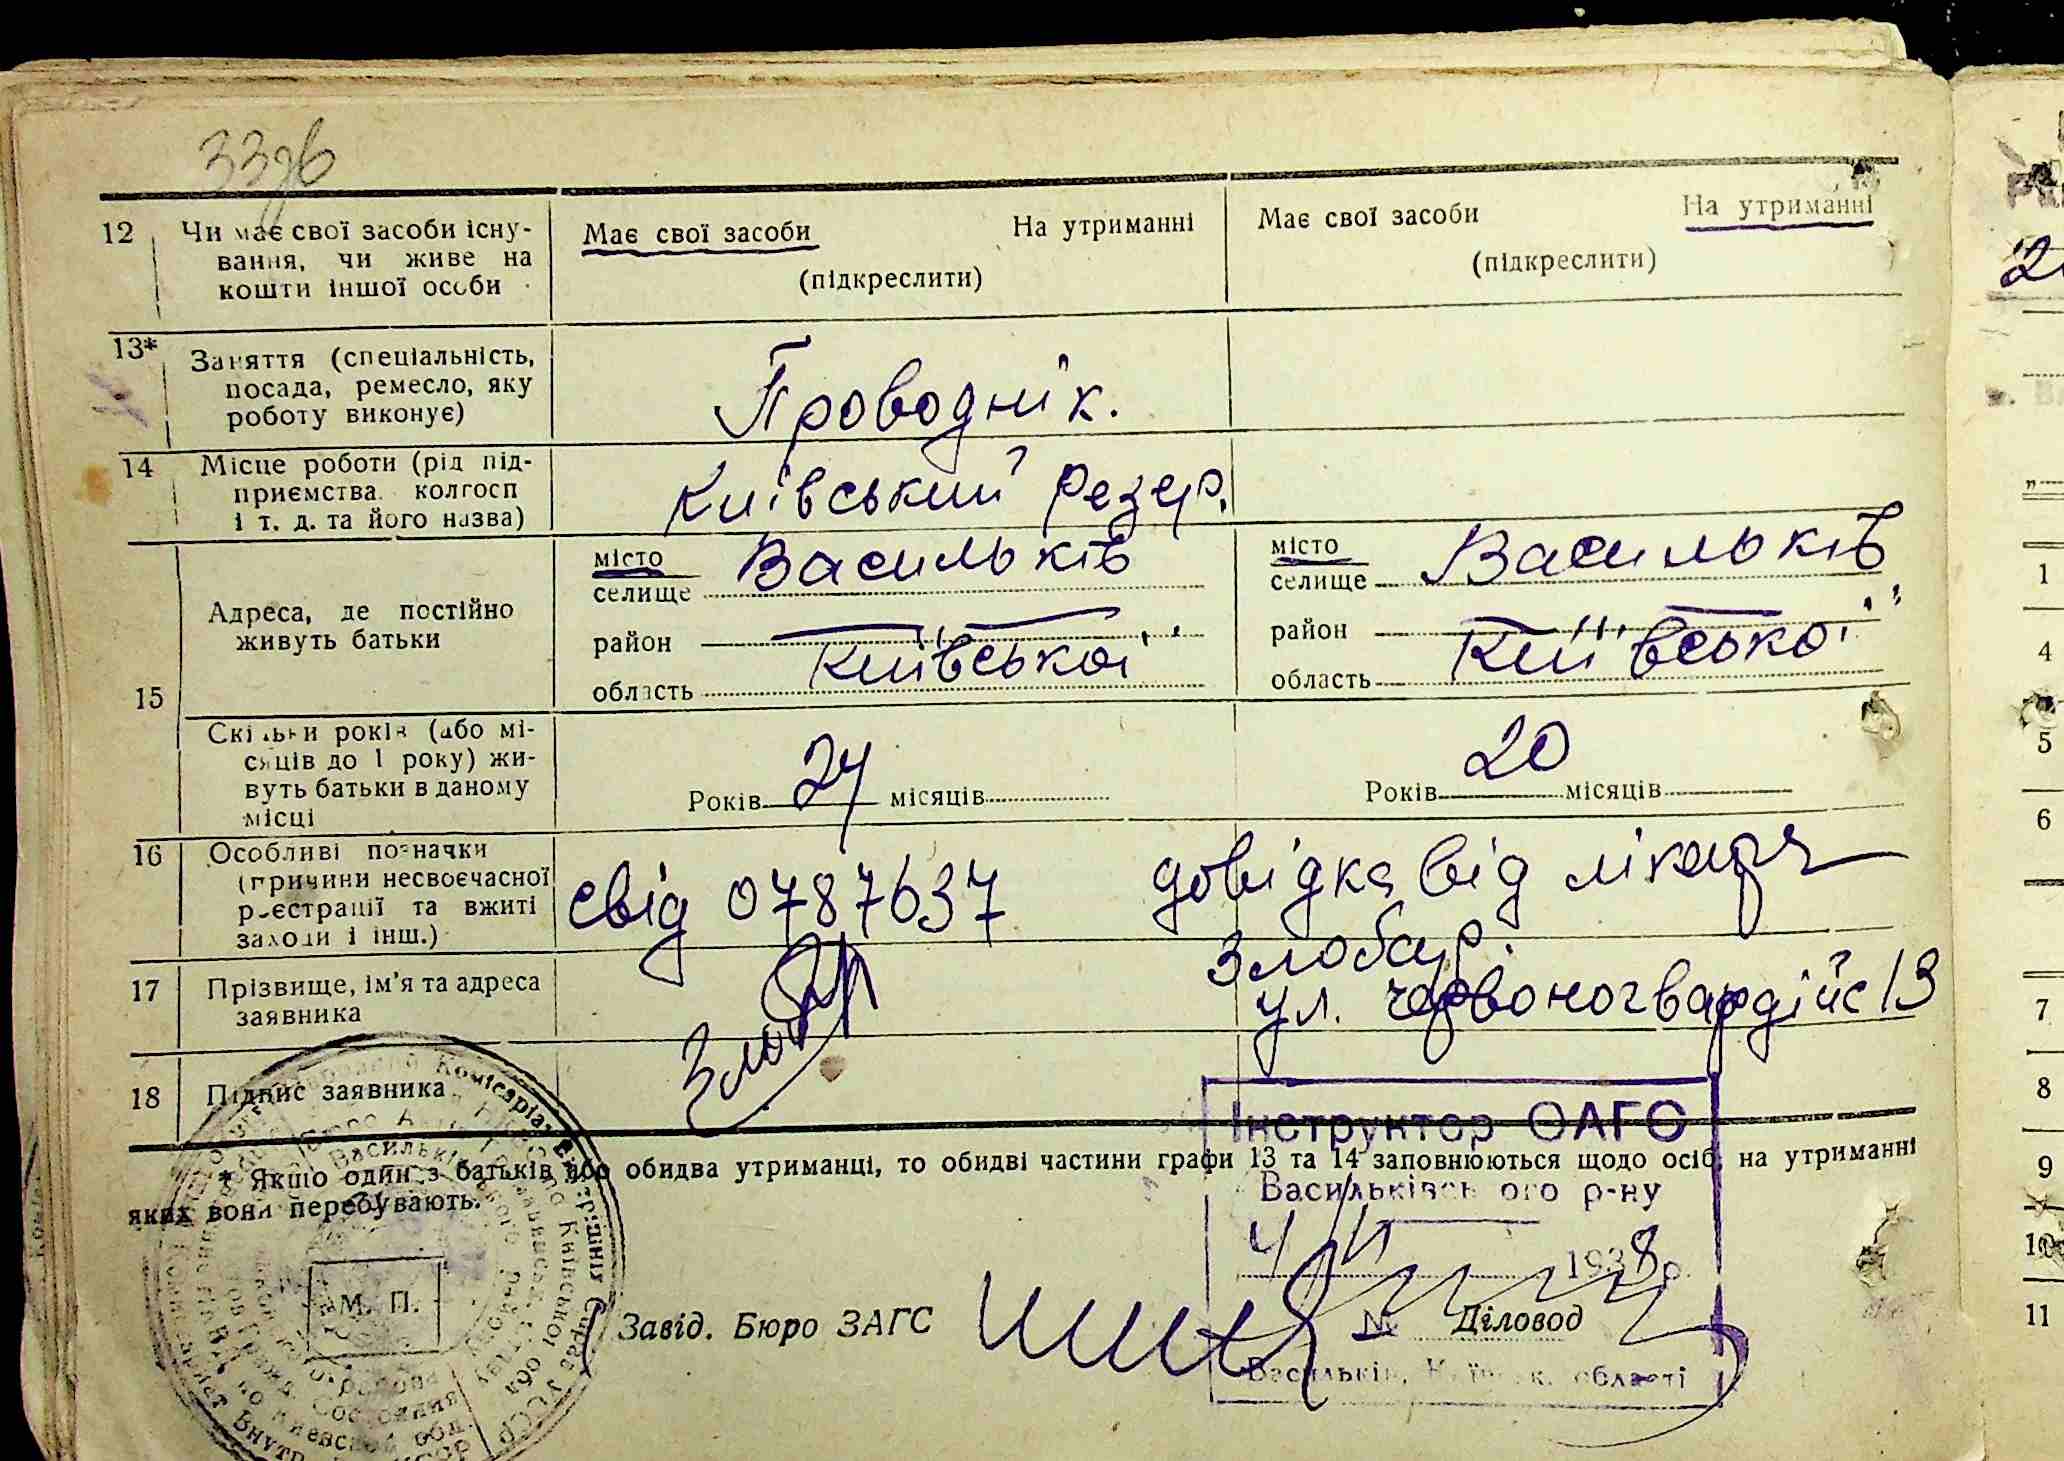 33зв
12 Чи має свої засоби існу-
вання, чи живе на
кошти іншої особи
Має свої засоби На утриманні
(підкреслити)
Має свої засоби На утриманні
(підкреслити)
13* Заняття (спеціальність,
посада, ремесло, яку
роботу виконує)
Проводнік.
14 Місце роботи (рід під-
приємства, колгосп
і т. д. та його назва)
Київський резер.
15
Адреса, де постійно
живуть батьки
місто
селище Васильків
район
область Київської
місто
селище Васильків
район
область Київської
Скільки років (або мі-
сяців до 1 року) жи-
вуть батьки в даному
місці
Років 24 місяців
Років 20 місяців
16 Особливі позначки
(причини несвоєчасної
реєстрації та вжиті
заходи і інш.)
свід 0787637 довідка від лікаря
17 Прізвище, ім'я та адреса
заявника
Злобар.
ул. Червоногвардійс 13
18 Підпис заявника
* Якщо один з батьків або обидва утриманці, то обидві частини графи 13 та 14 заповнюються щодо осіб, на утриманні
яких вони перебувають.
Інструктор ОАГС
Васильківського р-ну
4 1938 р.
№
Васильків, Київськ. області
М. П.
Завід. Бюро ЗАГС
Діловод
2
1
4
5
6
7
8
9
10
11